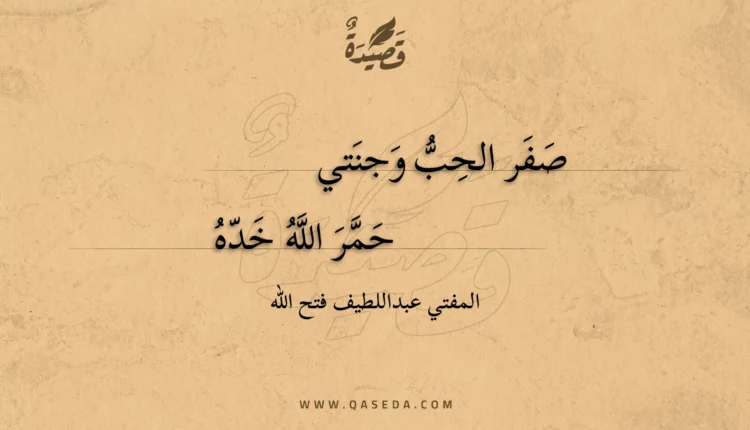 قَصِيدَةٌ
صَفَر الحِبُّ وَجنَتي
حَمَّرَ اللَّهُ خَدّهُ
المفتي عبداللطيف فتح الله
WWW.QASEDA.COM